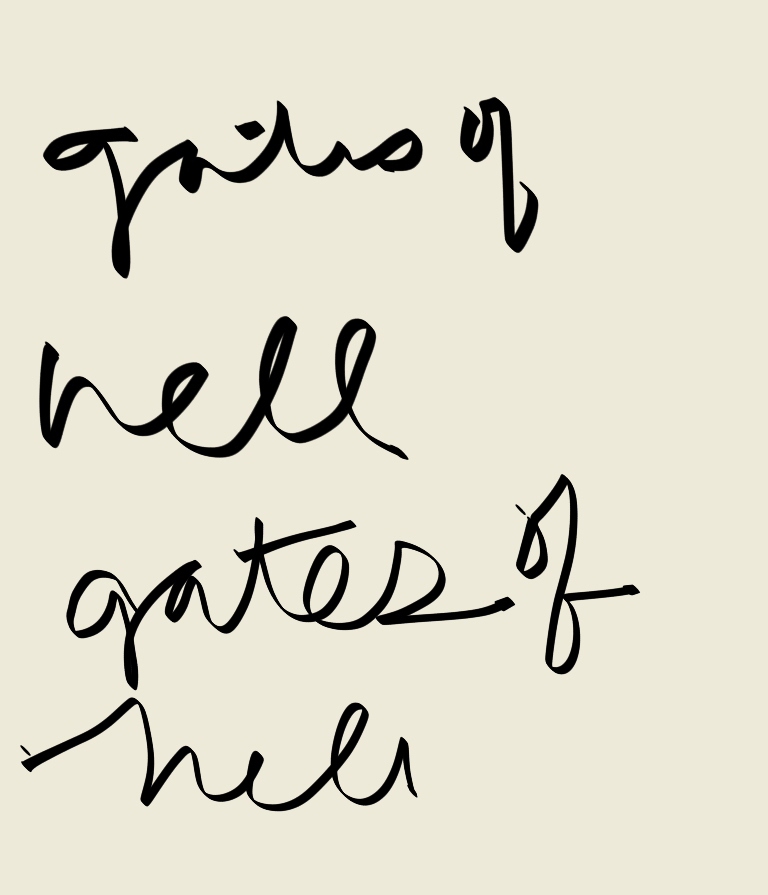 gates of
hell
gates of
hell